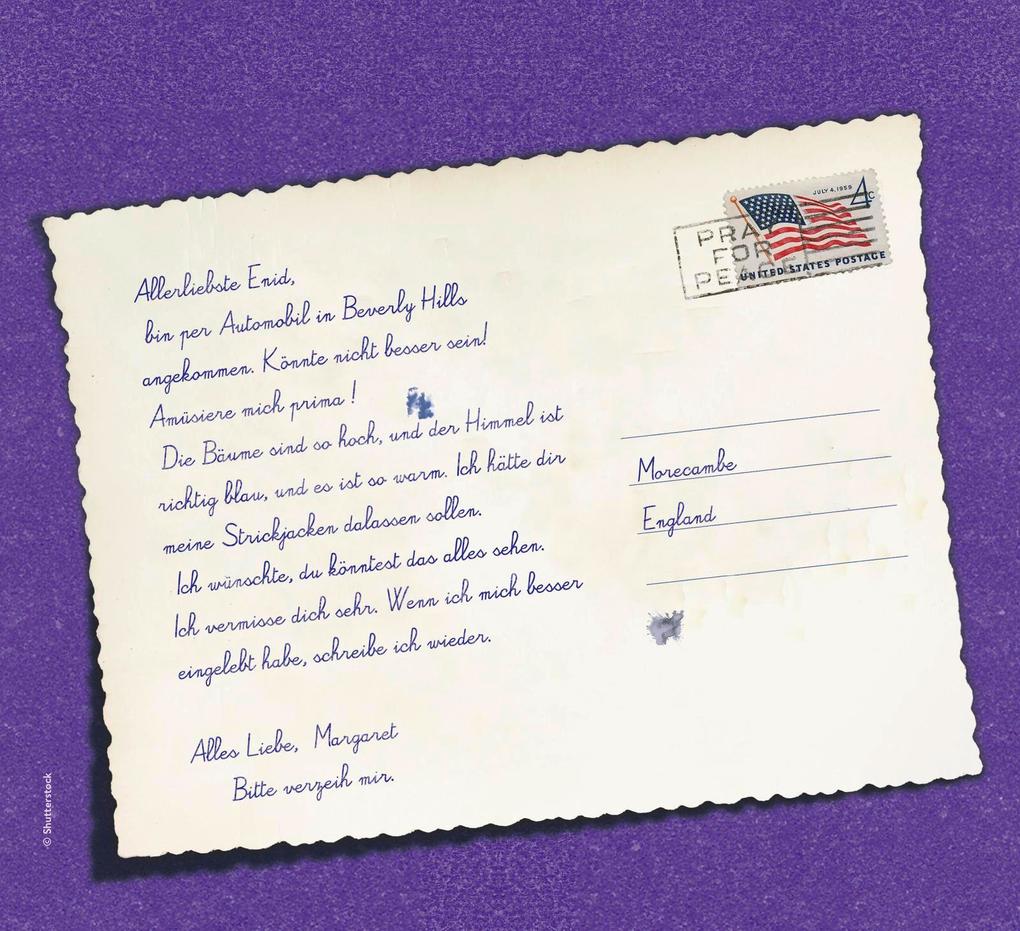 Allerliebste Enid,
bin per Automobil in Beverly Hills
angekommen. Könnte nicht besser sein!
Amüsiere mich prima !
Die Bäume sind so hoch, und der Himmel ist
richtig blau, und es ist so warm. Ich hätte dir
meine Strickjacken dalassen sollen.
Ich wünschte, du könntest das alles sehen.
Ich vermisse dich sehr. Wenn ich mich besser
eingelebt habe, schreibe ich wieder.
Alles Liebe, Margaret
Bitte verzeih mir.
JULY 4, 1959 4c
UNITED STATES POSTAGE
PRAY
FOR
PEACE
Morecambe
England
© Shutterstock